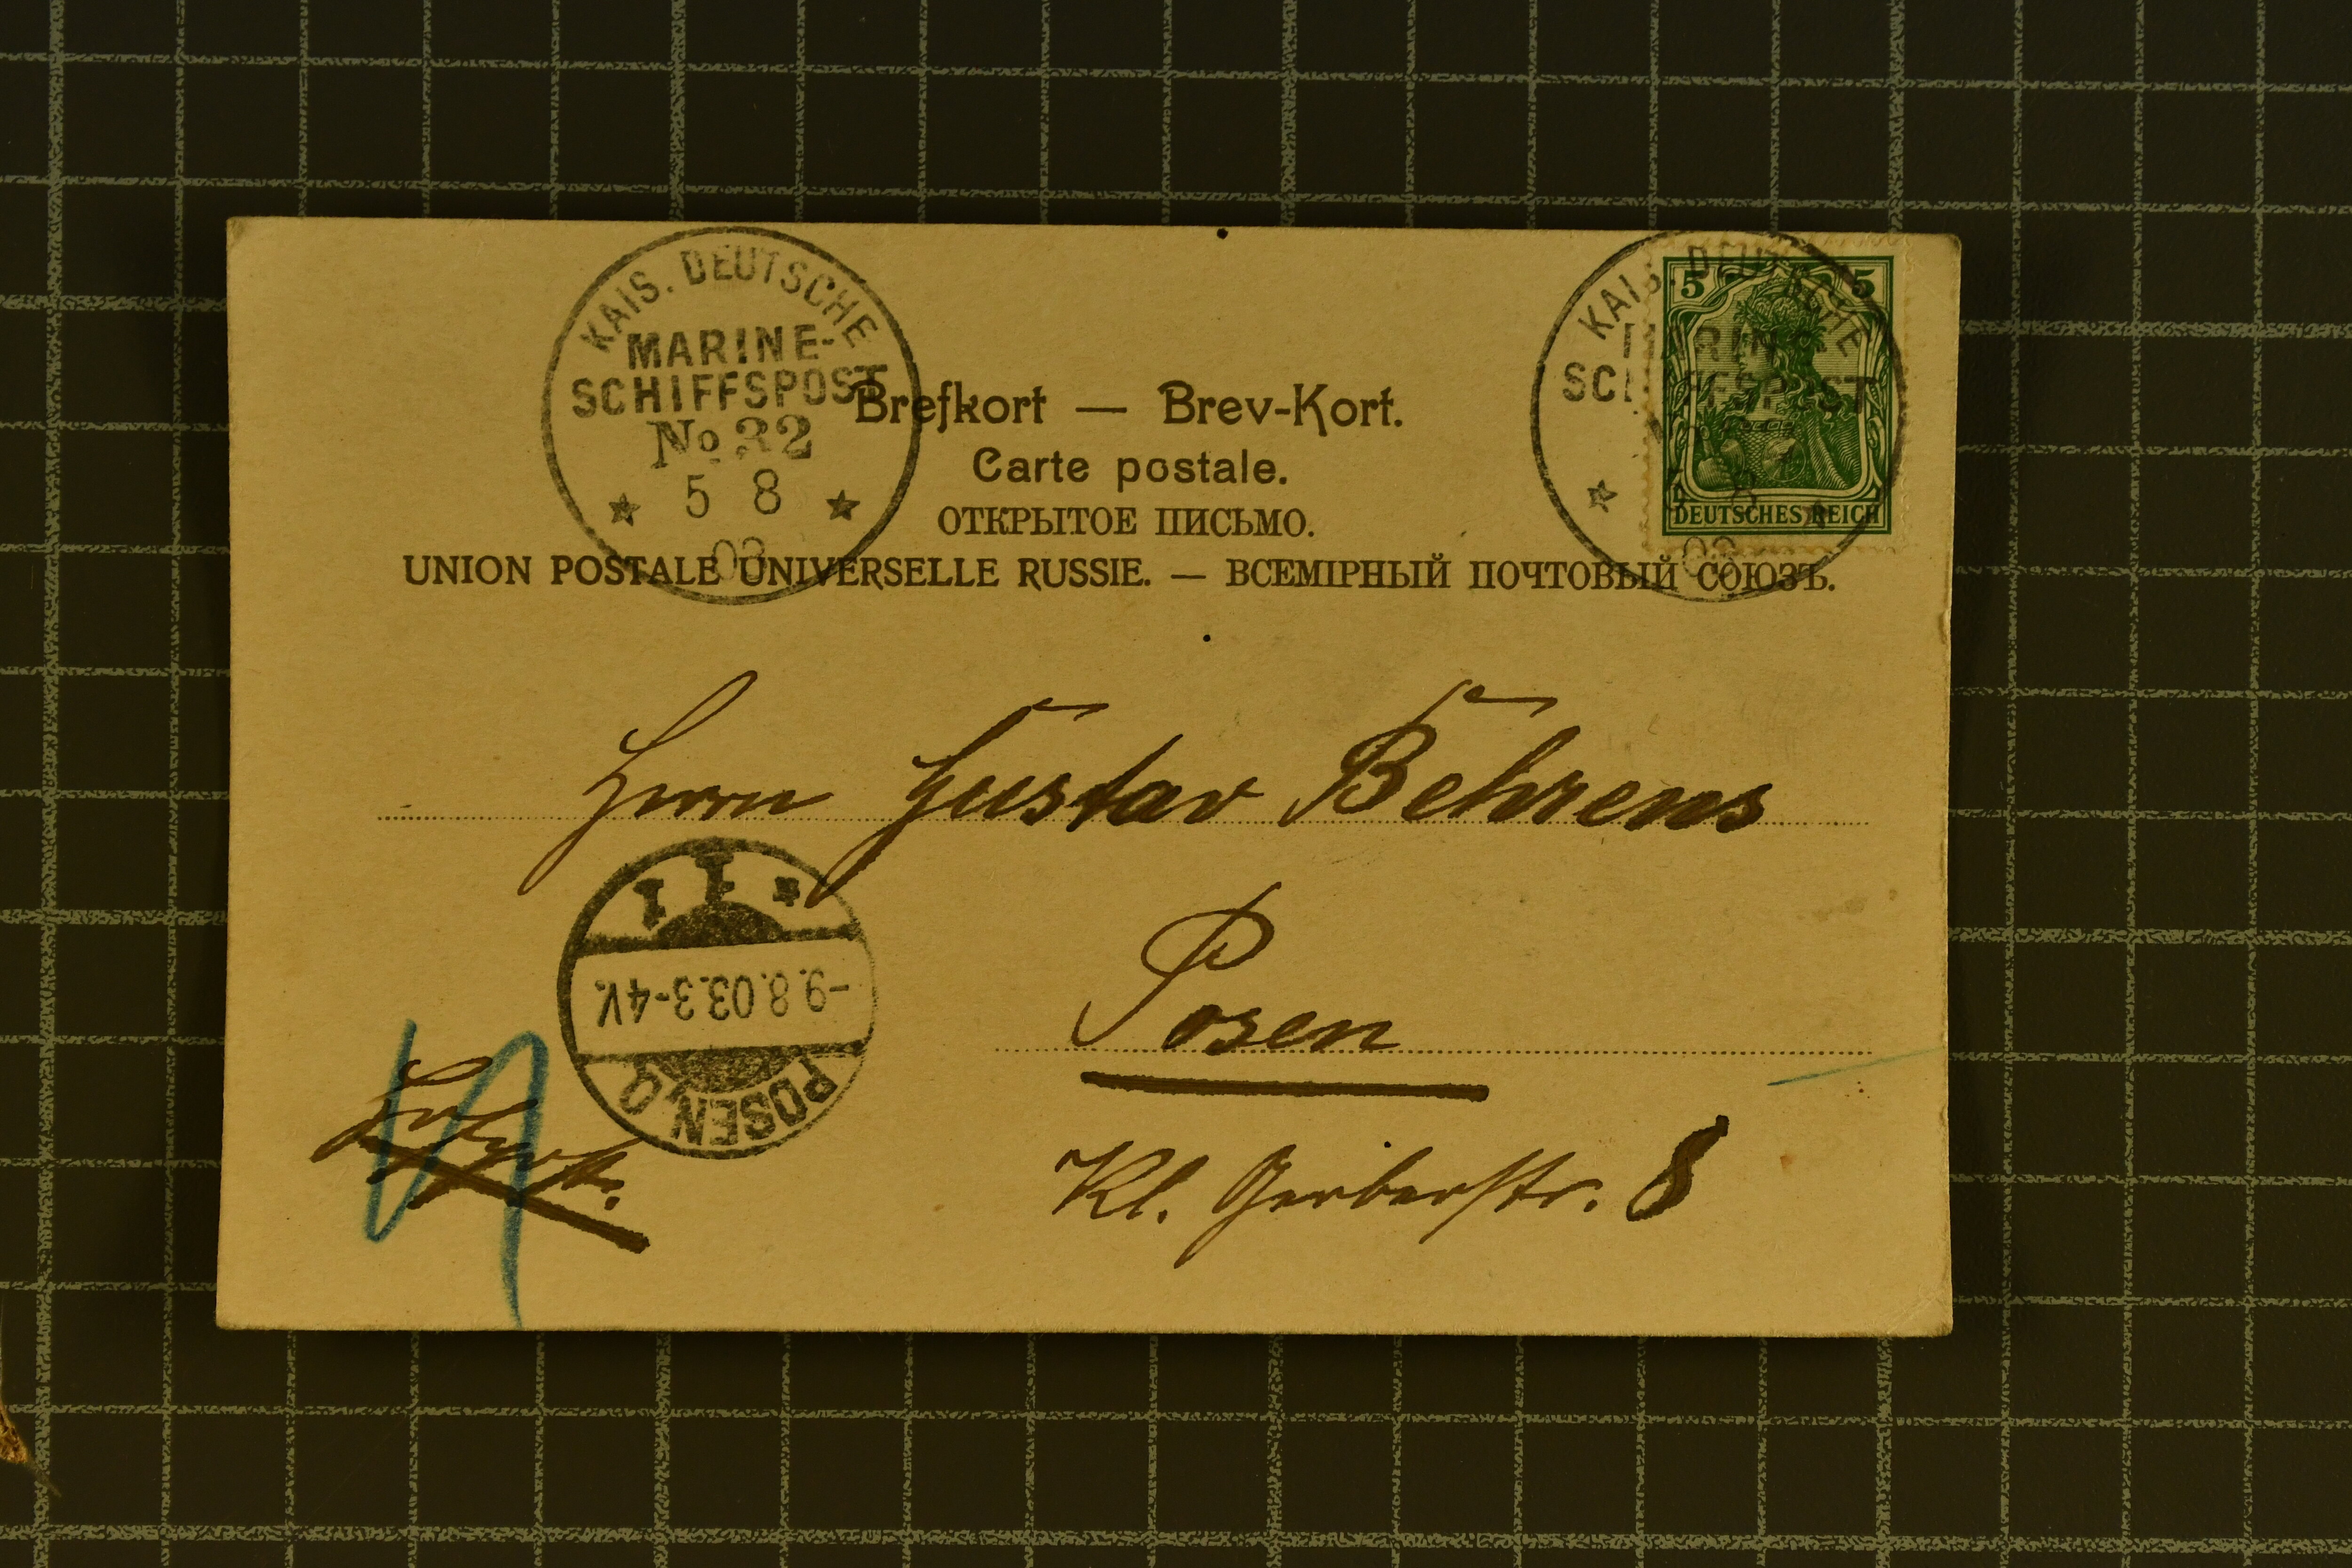 KAIS. DEUTSCHE
MARINE-
SCHIFFSPOST
No 32
5 8
03
KAIS. DEUTSCHE
MARINE-
SCHIFFSPOST
03
5 5
DEUTSCHES REICH
Brefkort — Brev-Kort.
Carte postale.
ОТКРЫТОЕ ПИСЬМО.
UNION POSTALE UNIVERSELLE RUSSIE. — ВСЕМІРНЫЙ ПОЧТОВЫЙ СОЮЗЪ.
Herrn Gustav Behrens
Posen
Kl. Gerberstr. 8
POSEN O
-9.8.03.3-4V.
* 1 1